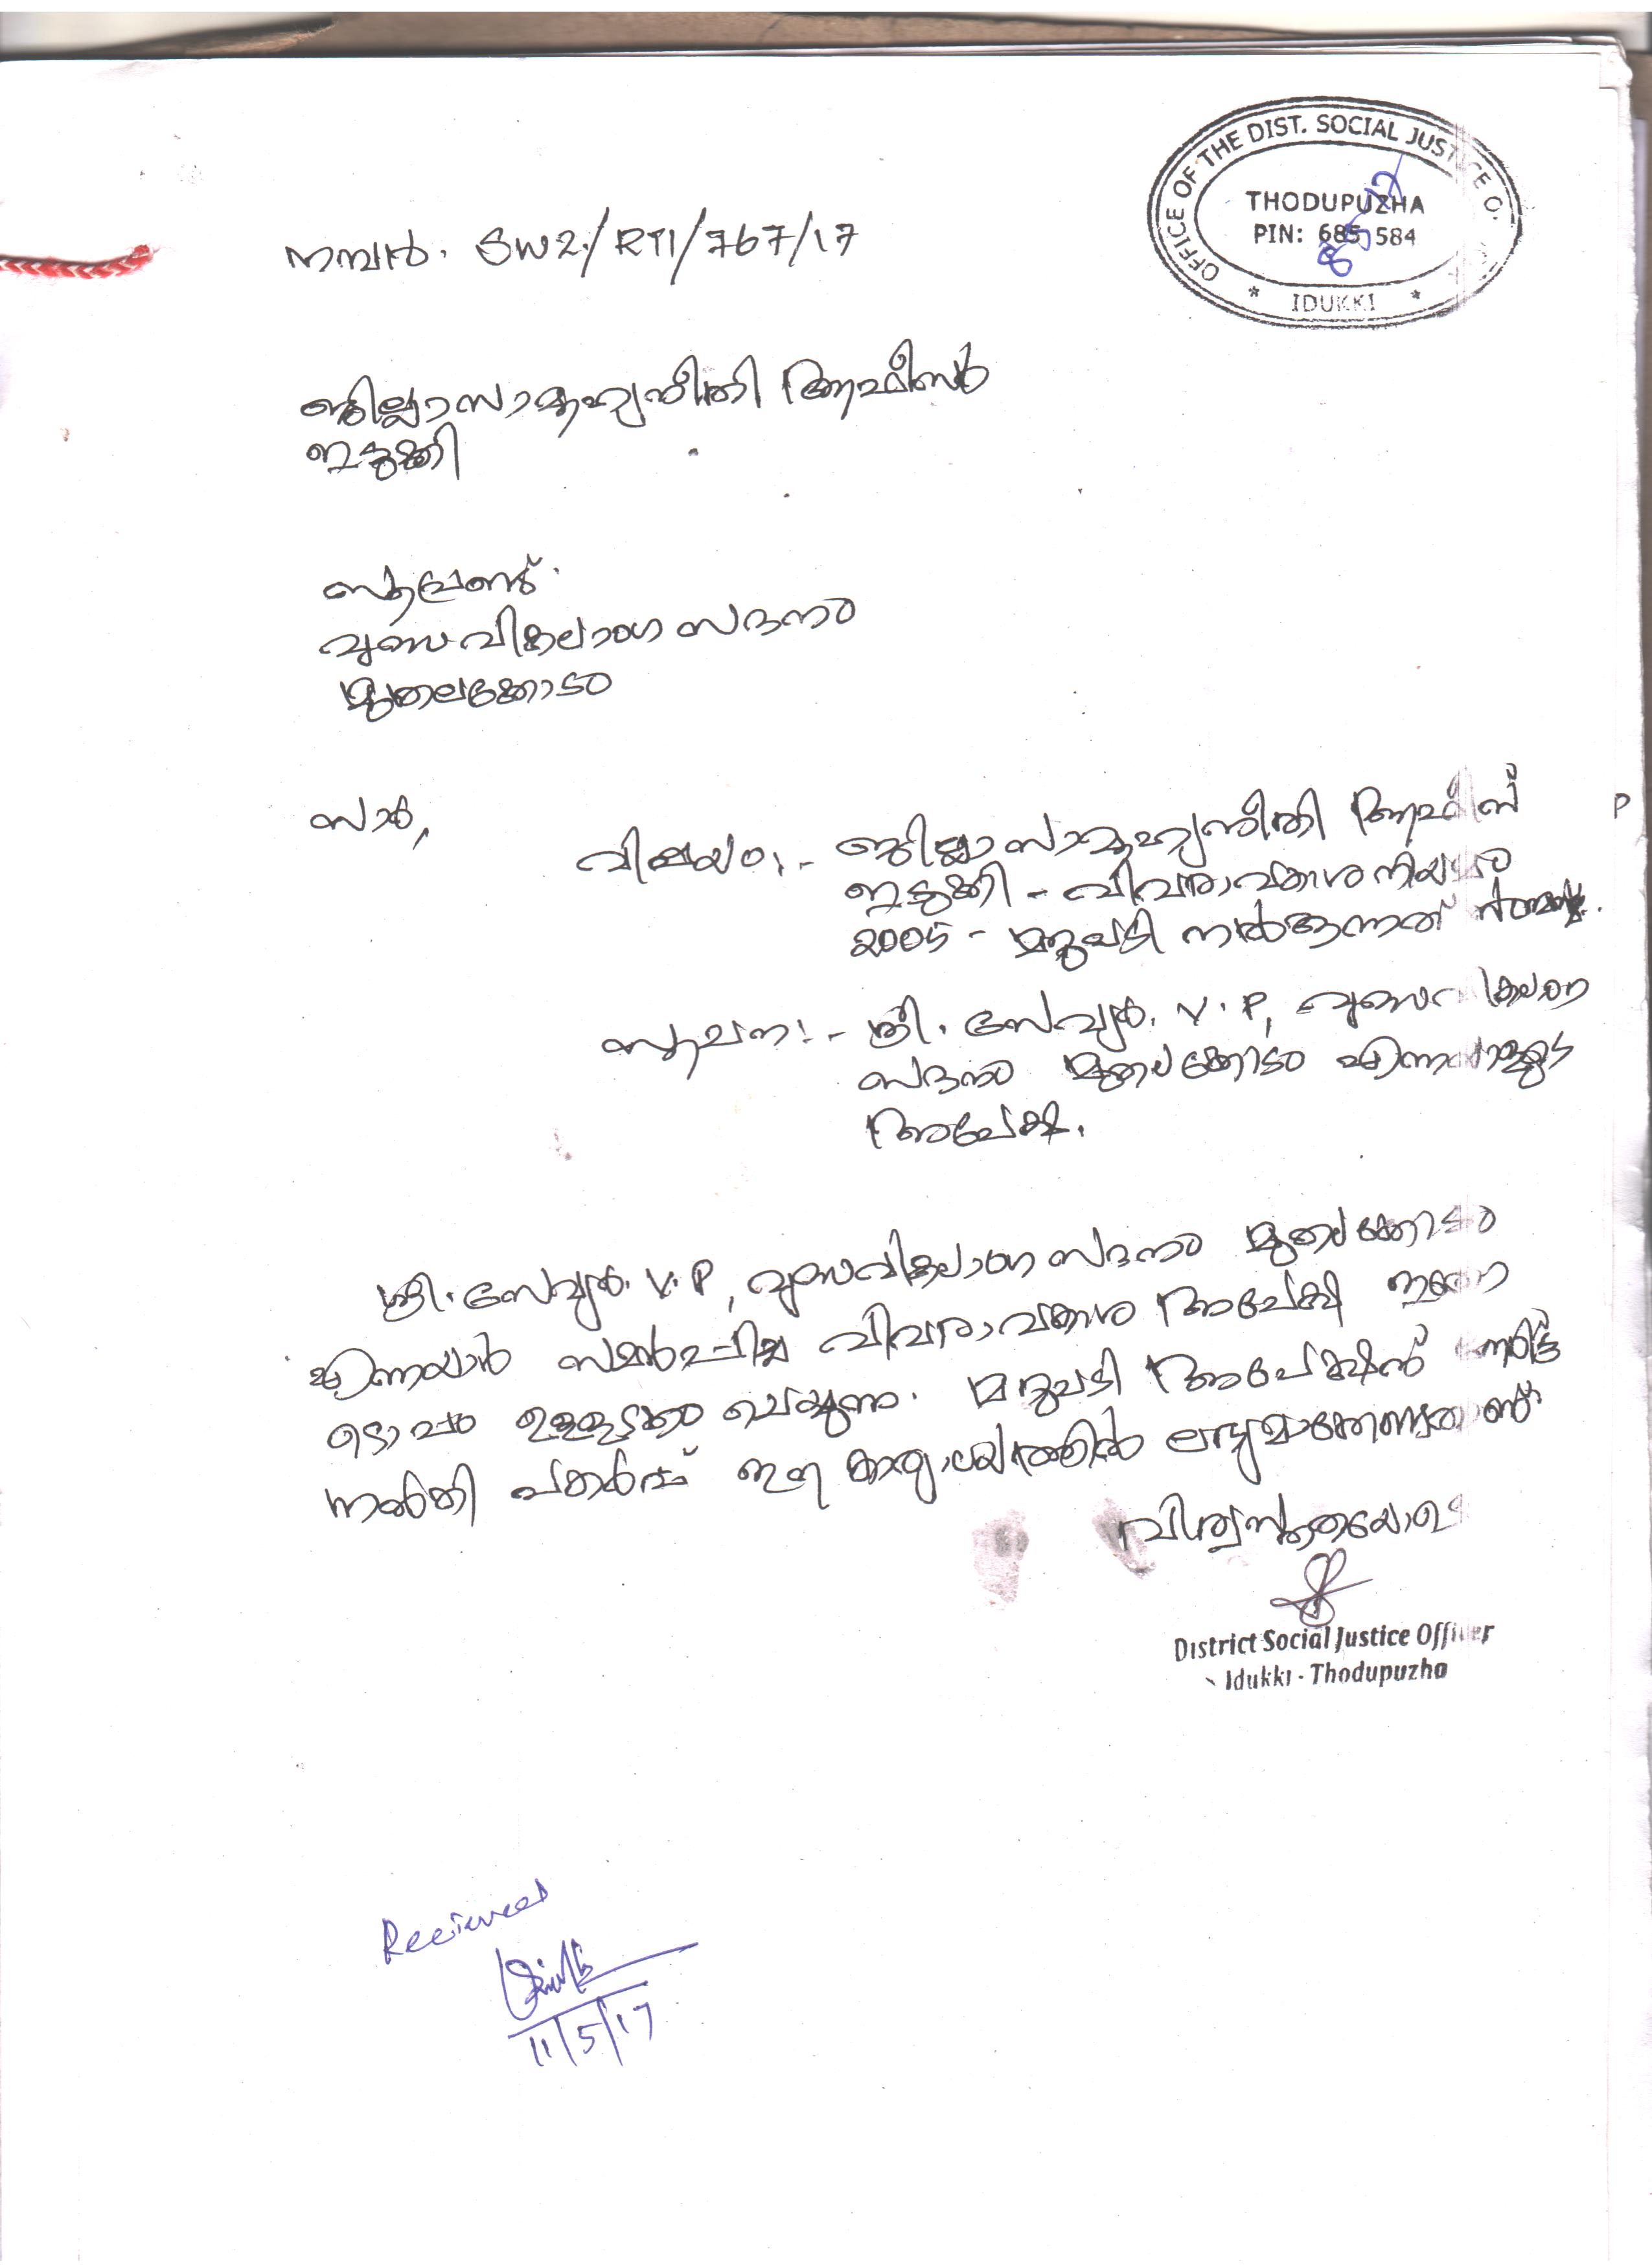 OFFICE OF THE DIST. SOCIAL JUSTICE O.
THODUPUZHA
PIN: 685 584
* IDUKKI *
നമ്പർ. SW2/RTI/767/17
ജില്ലാ സാമൂഹ്യനീതി ആഫീസർ
ഇടുക്കി
സൂപ്രണ്ട്.
വൃദ്ധവികലാംഗ സദനം
മുതലക്കോടം
സാർ,
വിഷയം:- ജില്ലാ സാമൂഹ്യനീതി ആഫീസ്
ഇടുക്കി - വിവരാവകാശ നിയമം
2005 - മറുപടി നൽകുന്നത്
സൂചന:- ശ്രീ. സേവ്യർ. V.P, വൃദ്ധവികലാംഗ
സദനം മുതലക്കോടം എന്നയാളുടെ
അപേക്ഷ.
ശ്രീ. സേവ്യർ. V.P, വൃദ്ധവികലാംഗ സദനം മുതലക്കോടം
എന്നയാൾ സമർപ്പിച്ച വിവരാവകാശ അപേക്ഷ ഇതോ
ടൊപ്പം ഉള്ളടക്കം ചെയ്യുന്നു. മറുപടി അപേക്ഷകന് നേരിട്ട്
നൽകി പകർപ്പ് ഈ കാര്യാലയത്തിൽ ലഭ്യമാക്കേണ്ടതാണ്.
വിശ്വസ്തതയോടെ
District Social Justice Officer
Idukki - Thodupuzha
Recieved
11/5/17